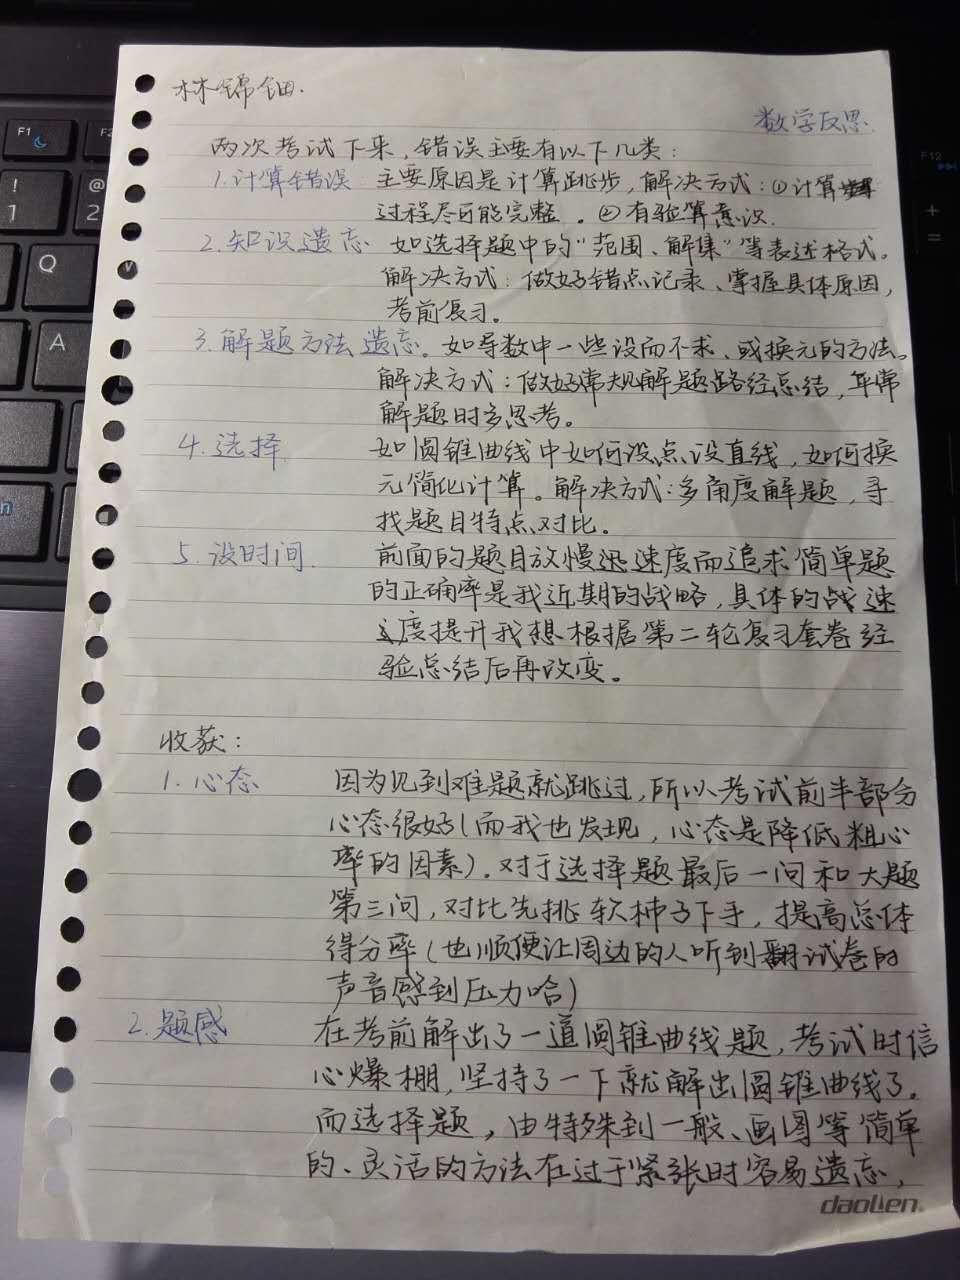 林锦钿.
数学反思
两次考试下来，错误主要有以下几类：
1.计算错误 主要原因是计算跳步，解决方式：①计算
过程尽可能完整。②有验算意识.
2.知识遗忘 如选择题中的“范围、解集”等表述格式。
解决方式：做好错点记录、掌握具体原因，
考前复习。
3.解题方法遗忘。如导数中一些设而不求、或换元的方法。
解决方式：做好常规解题路径总结，平常
解题时多思考。
4.选择. 如圆锥曲线中如何设点设直线，如何换
元简化计算。解决方式：多角度解题，寻
找题目特点对比。
5.没时间. 前面的题目放慢速度而追求简单题
的正确率是我近期的战略，具体的战速
度提升我想根据第二轮复习套卷经
验总结后再改变。
收获：
1.心态 因为见到难题就跳过，所以考试前半部分
心态很好（而我也发现，心态是降低粗心
率的因素）. 对于选择题最后一问和大题
第三问，对比先挑软柿子下手，提高总体
得分率（也顺便让周边的人听到翻试卷的
声音感到压力哈）
2.题感 在考前解出了一道圆锥曲线题，考试时信
心爆棚，坚持了一下就解出圆锥曲线了。
而选择题，由特殊到一般、画图等简单
的、灵活的方法在过于紧张时容易遗忘，
daolen
F1
F2
F12
!
1
@
2
Q
A
+
=